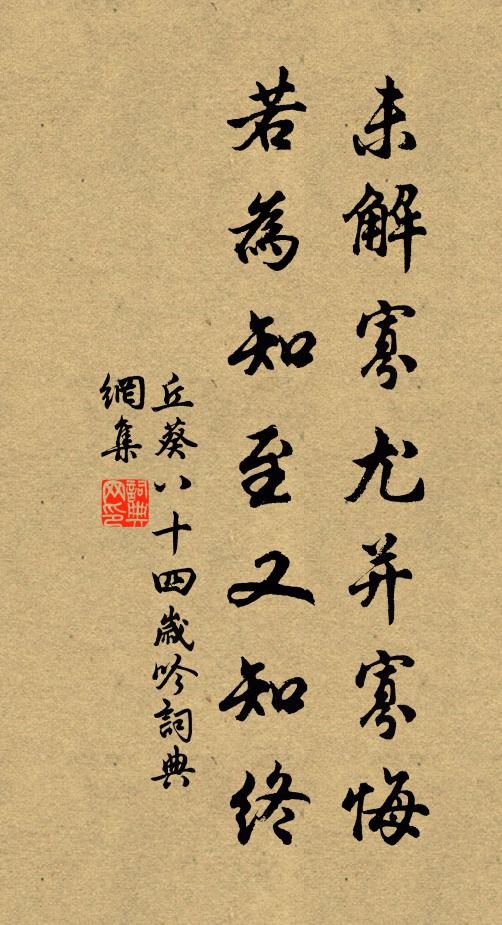 未解寡尤并寡悔
若為知至又知終
丘葵八十四歲吟詞典
網集
詞典
网印